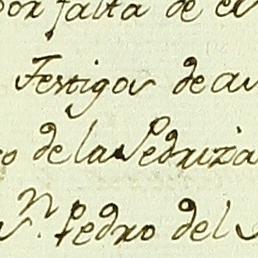 por falta de
Testigos de
de la Pedriza
n. Pedro del